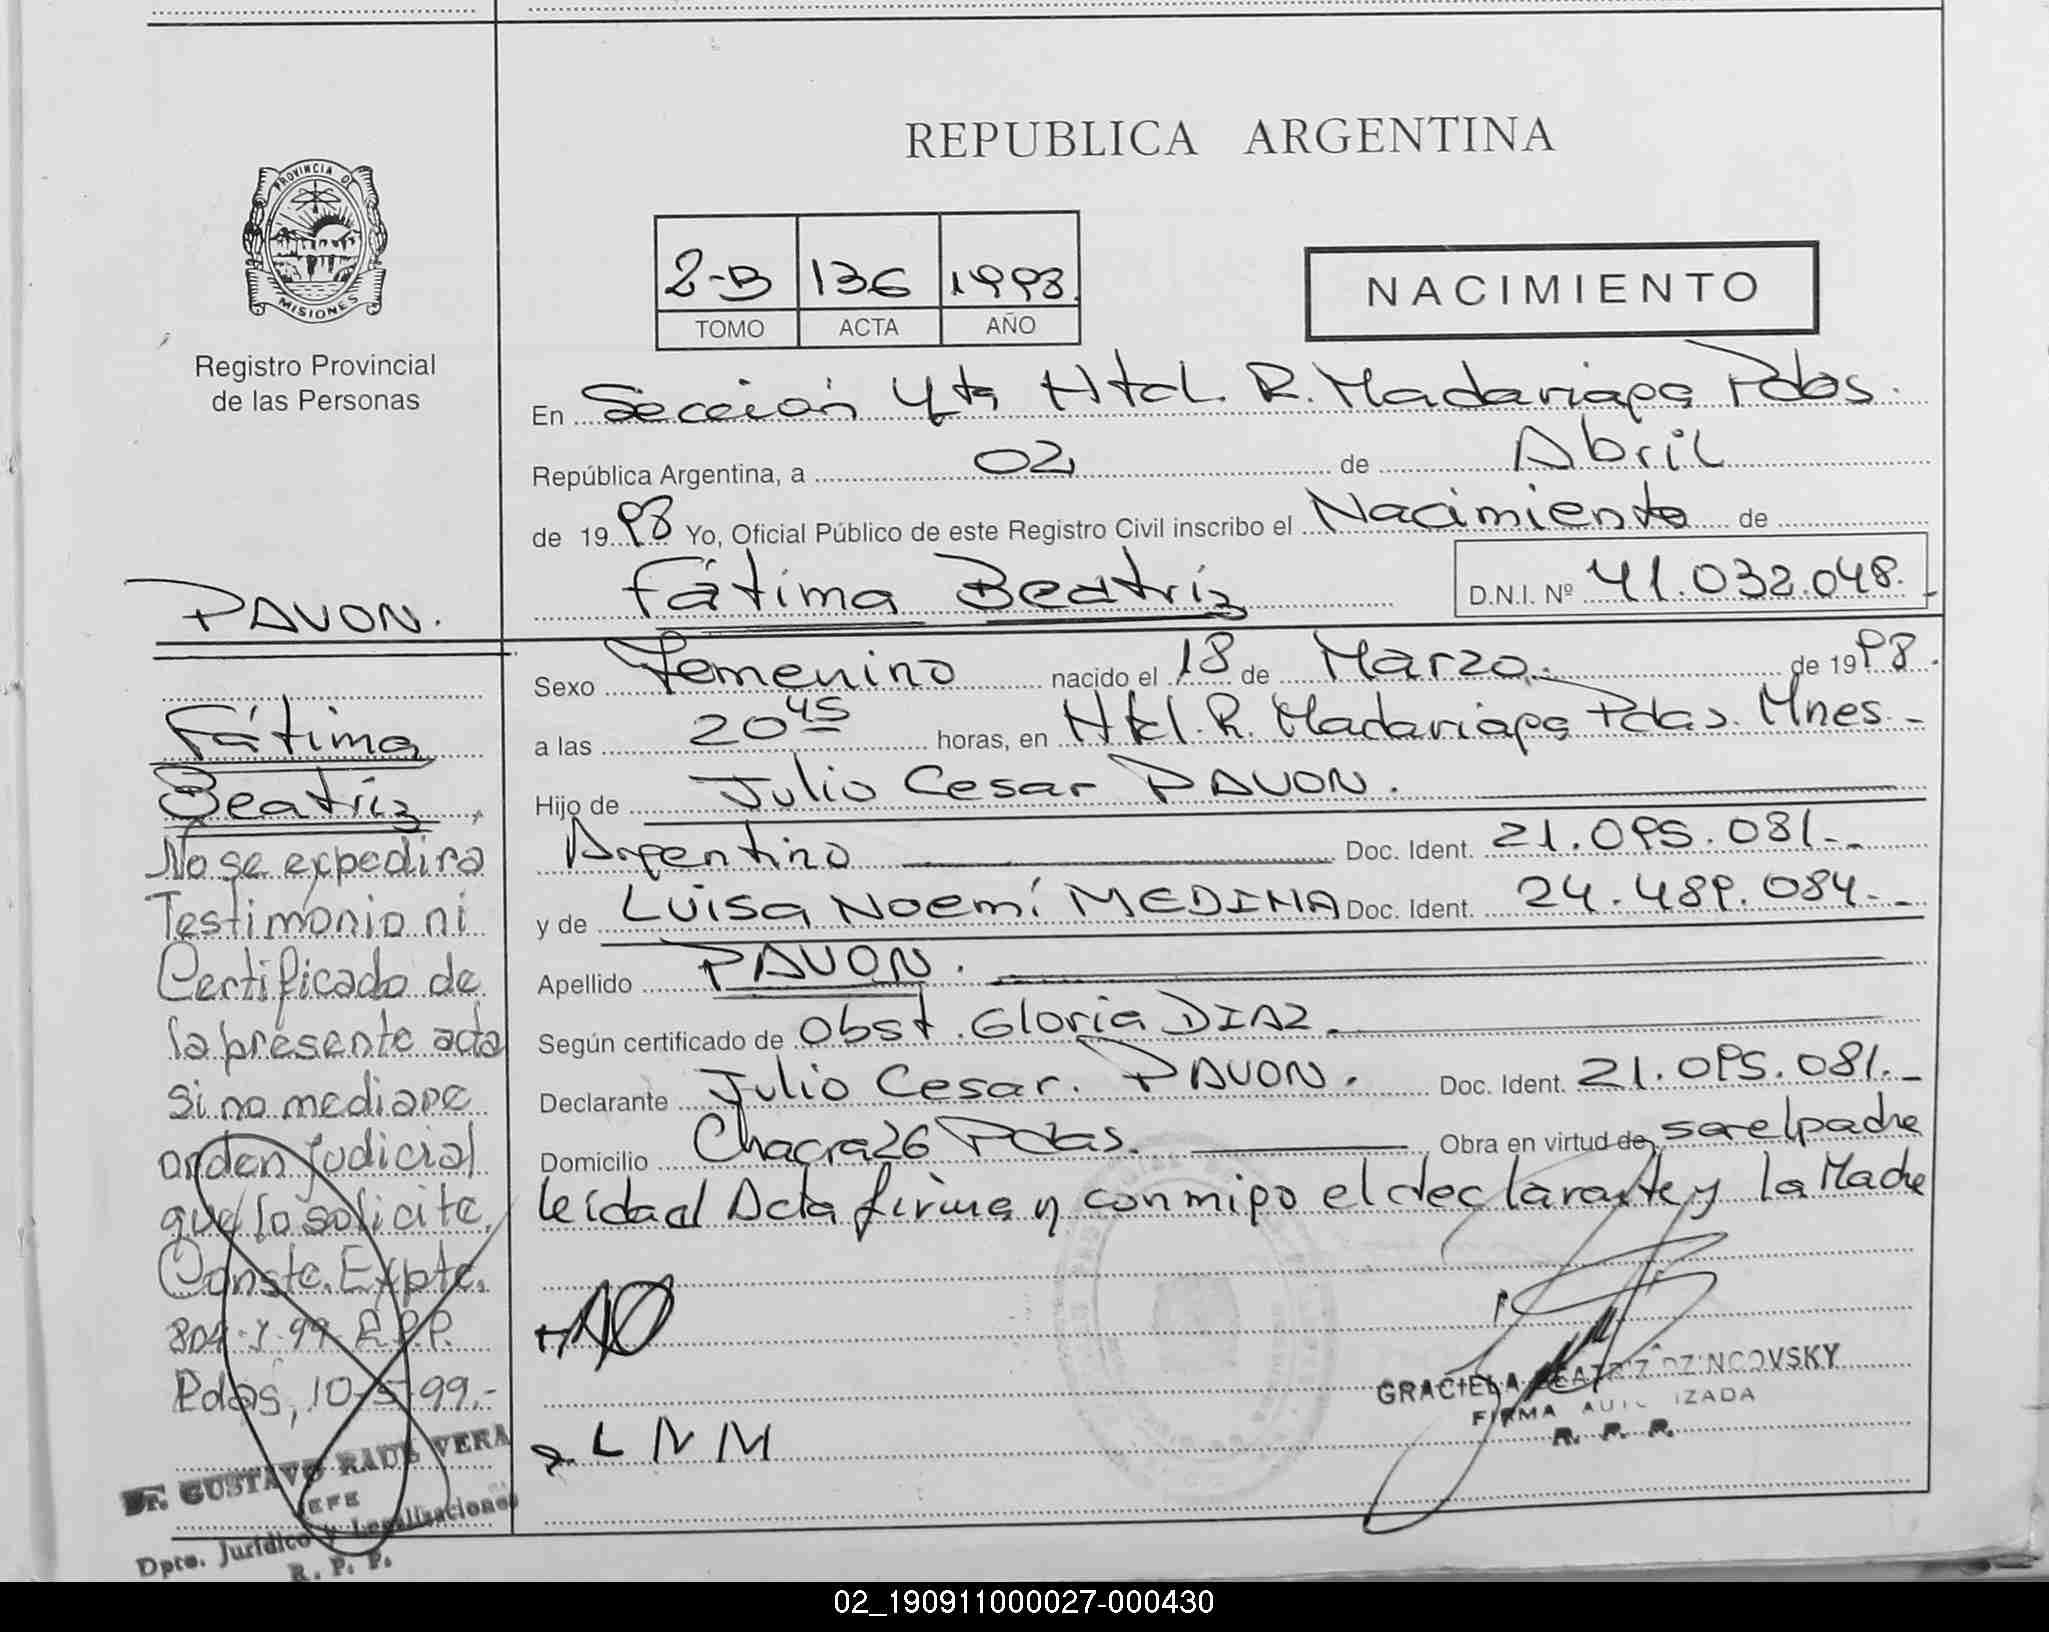 REPUBLICA ARGENTINA
PROVINCIA DE
MISIONES
Registro Provincial
de las Personas
2-B 136 1998
TOMO ACTA AÑO
NACIMIENTO
En Sección 4ta Htal. R. Madariaga Pdas.
República Argentina, a 02 de Abril
de 1998 Yo, Oficial Público de este Registro Civil inscribo el Nacimiento de
Fátima Beatriz D.N.I. Nº 41.032.048.-
Sexo Femenino nacido el 18 de Marzo. de 1998.
a las 20 45 horas, en Htal. R. Madariaga Pdas. Mnes.-
Hijo de Julio Cesar PAVON.
Argentino Doc. Ident. 21.095.081.-
y de Luisa Noemí MEDINA Doc. Ident. 24.489.084.-
Apellido PAVON.
Según certificado de Obst. Gloria DIAZ.
Declarante Julio Cesar. PAVON. Doc. Ident. 21.095.081.-
Domicilio Chacra 26 Pdas. Obra en virtud de ser el padre
leída el Acta firman conmigo el declarante y la Madre
L N M
GRACIELA BEATRIZ
FIRMA AUTORIZADA
R. P. P.
PAVON.
Fátima
Beatriz,
No se expedira
Testimonio ni
Certificado de
la presente acta
si no mediare
orden Judicial
que lo solicite.
Conste. Expte.
R.P.P.
Pdas, 10-5-99.-
Dr. GUSTAVO RAUL VERA
JEFE
Dpto. Jurídico y Legalizaciones
R. P. P.
02_190911000027-000430